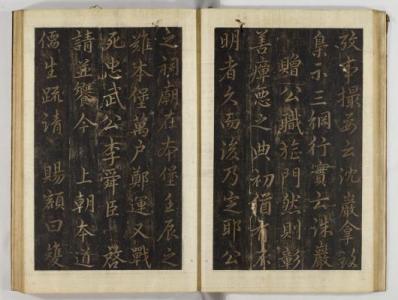 攷事撮要云沈巖拿致
梟示三綱行實云誅巖
贈公職旌門然則彰
善癉惡之典初猶不
明者久而後乃定耶公
之祠廟在本堡壬辰之
難本堡萬户鄭運又戰
死忠武公李舜臣 啓
請並饗今 上朝本道
儒生疏請 賜額曰雙